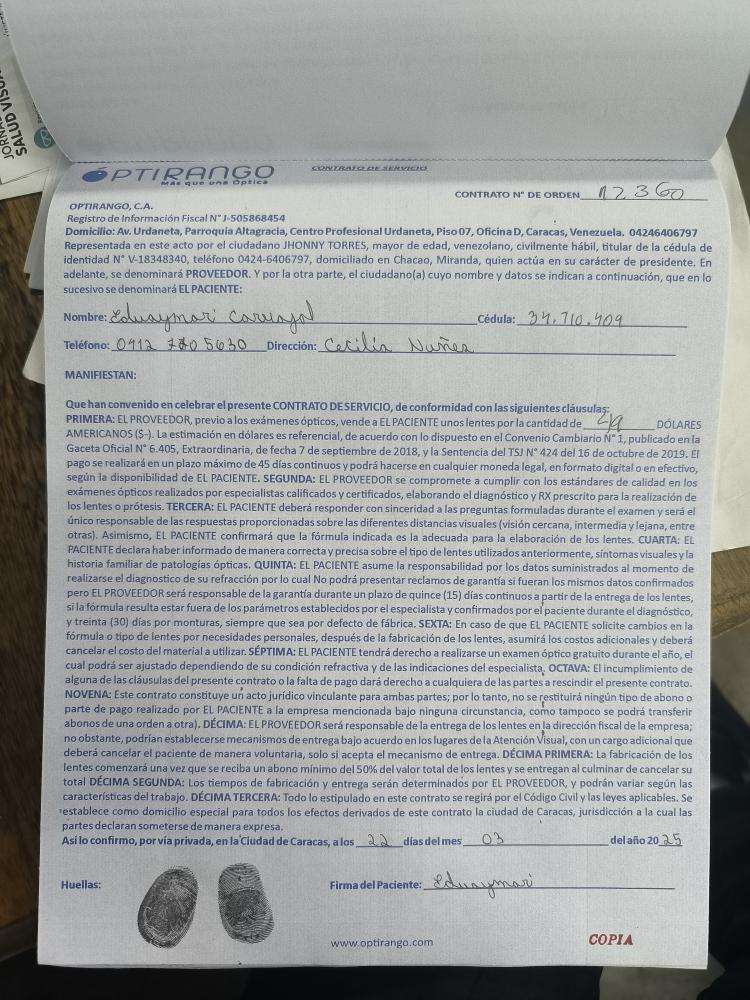 SALUD VISUAL
OPTIRANGO
Más que una Óptica
CONTRATO DE SERVICIO
CONTRATO N° DE ORDEN 12360
OPTIRANGO, C.A.
Registro de Información Fiscal N° J-505868454
Domicilio: Av. Urdaneta, Parroquia Altagracia, Centro Profesional Urdaneta, Piso 07, Oficina D, Caracas, Venezuela. 04246406797
Representada en este acto por el ciudadano JHONNY TORRES, mayor de edad, venezolano, civilmente hábil, titular de la cédula de
identidad N° V-18348340, teléfono 0424-6406797, domiciliado en Chacao, Miranda, quien actúa en su carácter de presidente. En
adelante, se denominará PROVEEDOR. Y por la otra parte, el ciudadano(a) cuyo nombre y datos se indican a continuación, que en lo
sucesivo se denominará EL PACIENTE:
Nombre: Eduaymari Carvajal Cédula: 34.710.409
Teléfono: 0412 780 5630 Dirección: Cecilia Nuñez
MANIFIESTAN:
Que han convenido en celebrar el presente CONTRATO DE SERVICIO, de conformidad con las siguientes cláusulas:
PRIMERA: EL PROVEEDOR, previo a los exámenes ópticos, vende a EL PACIENTE unos lentes por la cantidad de DÓLARES
AMERICANOS ($-). La estimación en dólares es referencial, de acuerdo con lo dispuesto en el Convenio Cambiario N° 1, publicado en la
Gaceta Oficial N° 6.405, Extraordinaria, de fecha 7 de septiembre de 2018, y la Sentencia del TSJ N° 424 del 16 de octubre de 2019. El
pago se realizará en un plazo máximo de 45 días continuos y podrá hacerse en cualquier moneda legal, en formato digital o en efectivo,
según la disponibilidad de EL PACIENTE. SEGUNDA: EL PROVEEDOR se compromete a cumplir con los estándares de calidad en los
exámenes ópticos realizados por especialistas calificados y certificados, elaborando el diagnóstico y RX prescrito para la realización de
los lentes o prótesis. TERCERA: EL PACIENTE deberá responder con sinceridad a las preguntas formuladas durante el examen y será el
único responsable de las respuestas proporcionadas sobre las diferentes distancias visuales (visión cercana, intermedia y lejana, entre
otras). Asimismo, EL PACIENTE confirmará que la fórmula indicada es la adecuada para la elaboración de los lentes. CUARTA: EL
PACIENTE declara haber informado de manera correcta y precisa sobre el tipo de lentes utilizados anteriormente, síntomas visuales y la
historia familiar de patologías ópticas. QUINTA: EL PACIENTE asume la responsabilidad por los datos suministrados al momento de
realizarse el diagnostico de su refracción por lo cual No podrá presentar reclamos de garantía si fueran los mismos datos confirmados
pero EL PROVEEDOR será responsable de la garantía durante un plazo de quince (15) días continuos a partir de la entrega de los lentes,
si la fórmula resulta estar fuera de los parámetros establecidos por el especialista y confirmados por el paciente durante el diagnóstico,
y treinta (30) días por monturas, siempre que sea por defecto de fábrica. SEXTA: En caso de que EL PACIENTE solicite cambios en la
fórmula o tipo de lentes por necesidades personales, después de la fabricación de los lentes, asumirá los costos adicionales y deberá
cancelar el costo del material a utilizar. SÉPTIMA: EL PACIENTE tendrá derecho a realizarse un examen óptico gratuito durante el año, el
cual podrá ser ajustado dependiendo de su condición refractiva y de las indicaciones del especialista. OCTAVA: El incumplimiento de
alguna de las cláusulas del presente contrato o la falta de pago dará derecho a cualquiera de las partes a rescindir el presente contrato.
NOVENA: Este contrato constituye un acto jurídico vinculante para ambas partes; por lo tanto, no se restituirá ningún tipo de abono o
parte de pago realizado por EL PACIENTE a la empresa mencionada bajo ninguna circunstancia, como tampoco se podrá transferir
abonos de una orden a otra). DÉCIMA: EL PROVEEDOR será responsable de la entrega de los lentes en la dirección fiscal de la empresa;
no obstante, podrían establecerse mecanismos de entrega bajo acuerdo en los lugares de la Atención Visual, con un cargo adicional que
deberá cancelar el paciente de manera voluntaria, solo si acepta el mecanismo de entrega. DÉCIMA PRIMERA: La fabricación de los
lentes comenzará una vez que se reciba un abono mínimo del 50% del valor total de los lentes y se entregan al culminar de cancelar su
total DÉCIMA SEGUNDA: Los tiempos de fabricación y entrega serán determinados por EL PROVEEDOR, y podrán variar según las
características del trabajo. DÉCIMA TERCERA: Todo lo estipulado en este contrato se regirá por el Código Civil y las leyes aplicables. Se
establece como domicilio especial para todos los efectos derivados de este contrato la ciudad de Caracas, jurisdicción a la cual las
partes declaran someterse de manera expresa.
Así lo confirmo, por vía privada, en la Ciudad de Caracas, a los 22 días del mes 03 del año 2025
Huellas: Firma del Paciente: Eduaymari
www.optirango.com COPIA